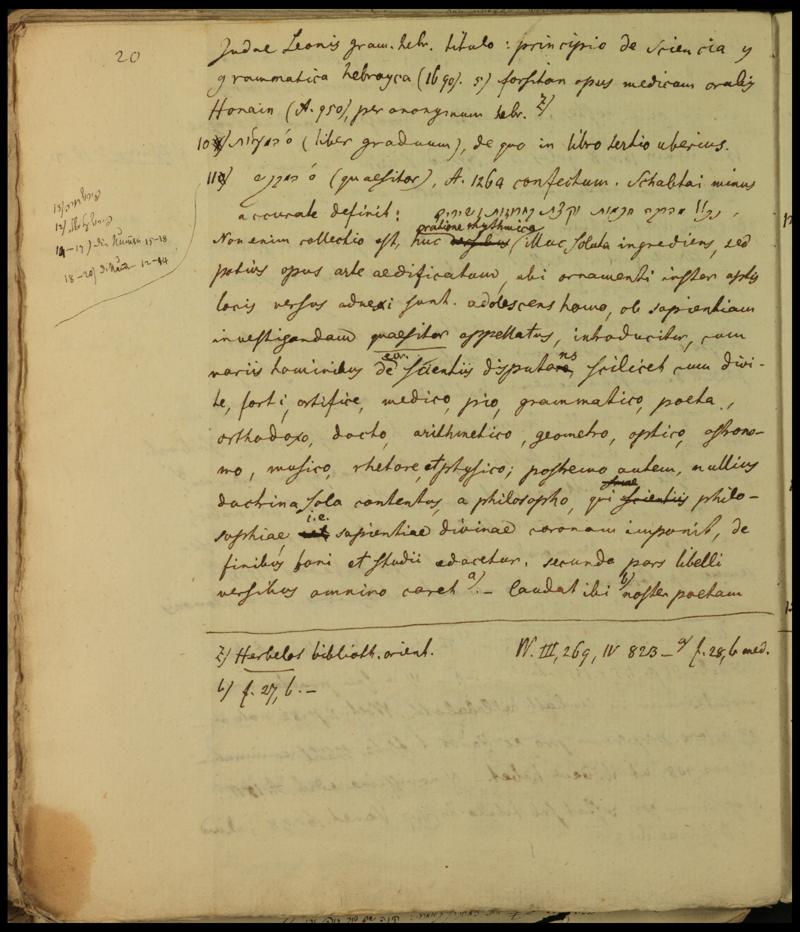 20
Judae Leonis gram. hebr. titulo: principio de sciencia y
grammatica hebrayca (1690). 5) forsitan opus medicum
Honain (A. 950), per anonymum hebr. z)
10) ס׳ המעלות (liber graduum), de quo in libro tertio uberius.
11) ס׳ המבקש (quaesitor), A. 1264 confectum. Schabtai minus
accurate definit:
Non enim collectio est, huc oratione rhythmica illuc soluta ingrediens, sed
potius opus arte aedificatum, ubi ornamenti instar aptis
locis versus adnexi sunt. adolescens homo, ob sapientiam
investigandam quaesitor appellatus, introducitur, cum
variis hominibus de scientiis disputans, scilicet cum divi-
te, forti, artifice, medico, pio, grammatico, poeta,
orthodoxo, docto, arithmetico, geometro, optico, astrono-
mo, musico, rhetore, et physico; postremo autem, nullius
doctrina sola contentus, a philosopho, qui suae philo-
sophiae i.e. sapientiae divinae coronam imponit, de
finibus boni et studii edocetur. secunda pars libelli
versibus omnino caret a). – laudat ibi b) noster poetam
z) Herbelot biblioth. orient. W. III, 269, IV 823 – a) f. 28, b med.
b) f. 27, b. –